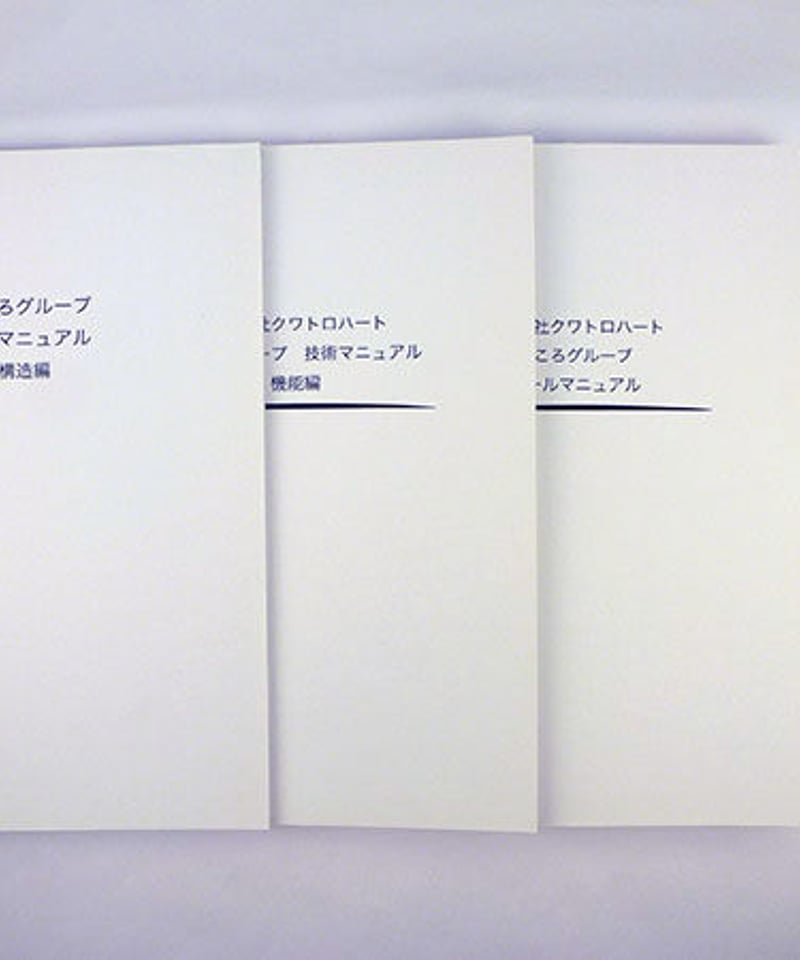 ろグループ
マニュアル
構造編
社クワトロハート
ープ 技術マニュアル
機能編
社クワトロハート
ころグループ
ールマニュアル